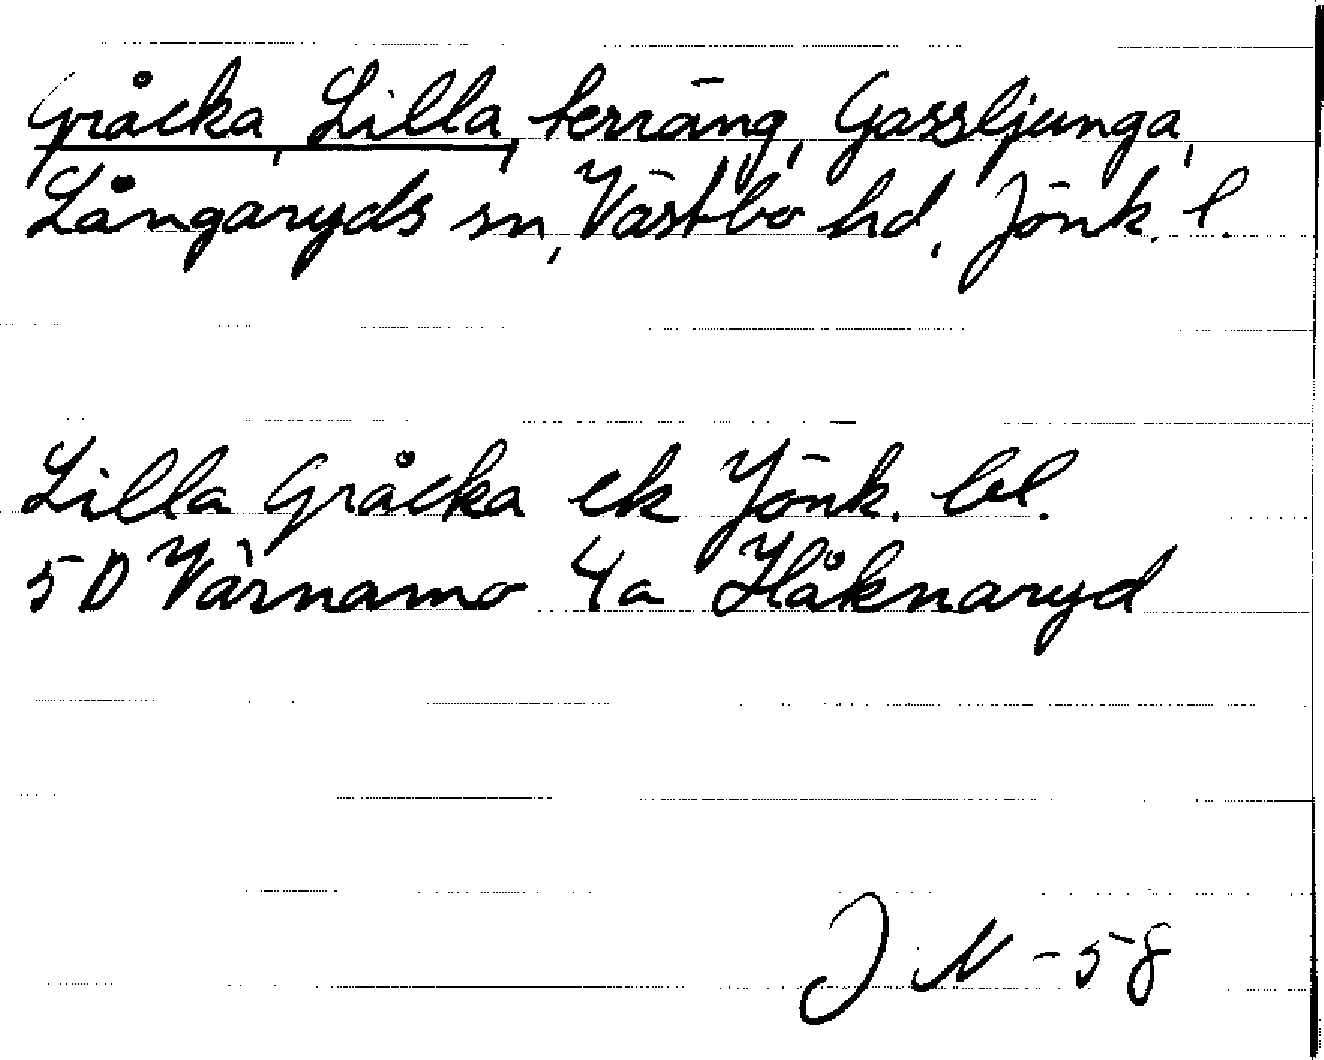 Gråcka, Lilla, terräng, Gassljunga,
Långaryds sn, Västbo hd, Jönk. l.
Lilla Gråcka ek Jönk. bl.
5D Värnamo 4a Håknaryd
J N -58